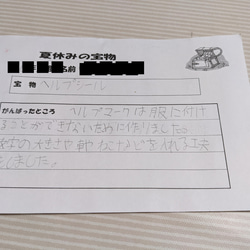 夏休みの宝物
名前
宝物 ヘルプシール
がんばったところ ヘルプマークは服に付け
ることができないために作りました。
体の大きさや
などを入れる工夫
をしました。